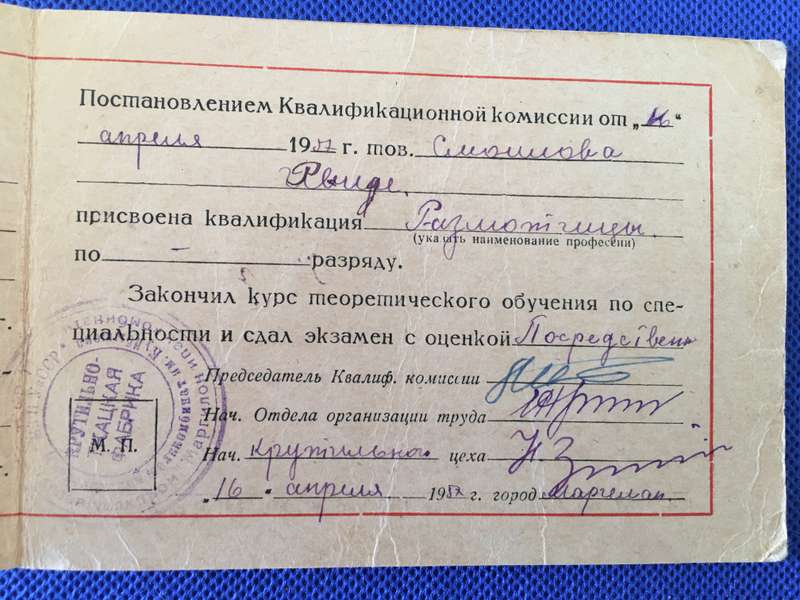 Постановлением Квалификационной комиссии от „16“
апреля 195 г. тов. Смоилова
присвоена квалификация Размотчицы
(указать наименование професеии)
по – разряду.
Закончил курс теоретического обучения по спе-
циальности и сдал экзамен с оценкой Посредствен
Председатель Квалиф. комиссии
Нач. Отдела организации труда
Нач. крутильно цеха
М. П.
„16“ апреля 195 г. город Маргелан.
КРУТИЛЬНО-
ТКАЦКАЯ
ФАБРИКА